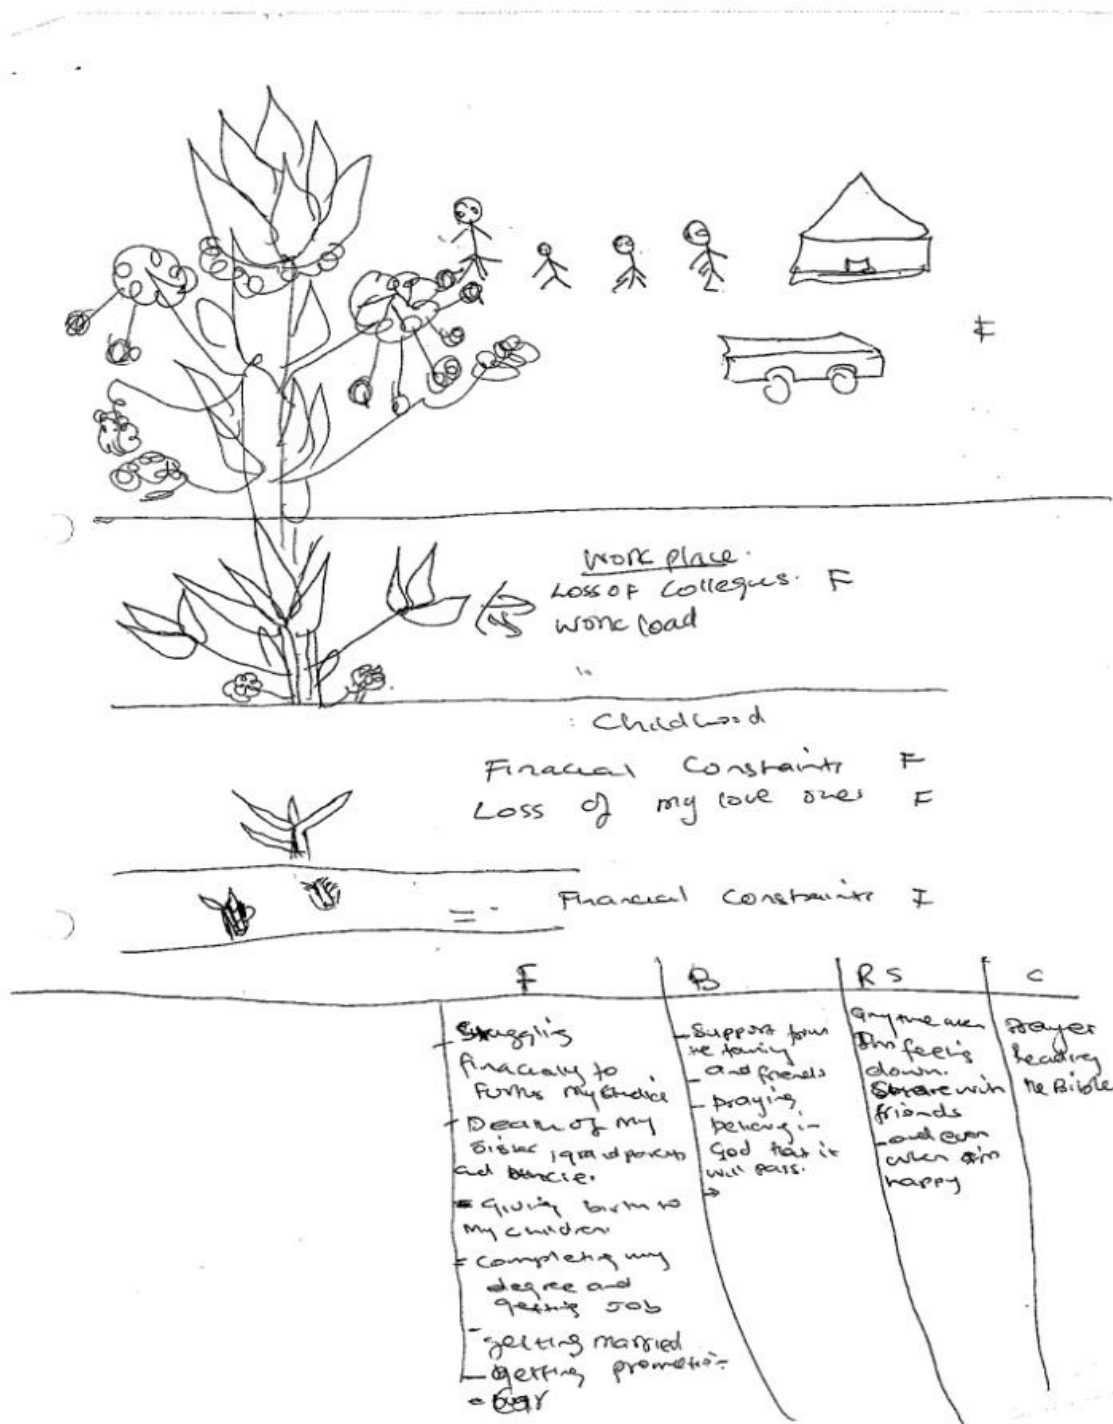 Work place.
Loss of Collegus. F
work load
: Childhood
Finacial Constraints F
Loss of my love ones F
= Financial Constraints F
F
Struggling
finacialy to
Furthe my studies
- Death of my
sister, grandparents
and uncle.
- Giving birth to
My children
- Completing my
degree and
getting Job
- getting married
- getting promotion
B
- Support from
the family
and friends
- praying
believing in
God that it
will pass.
RS
Anytime when
I'm feeling
down.
Share with
friends
- and even
when I'm
happy
C
Prayer
Reading
the Bible